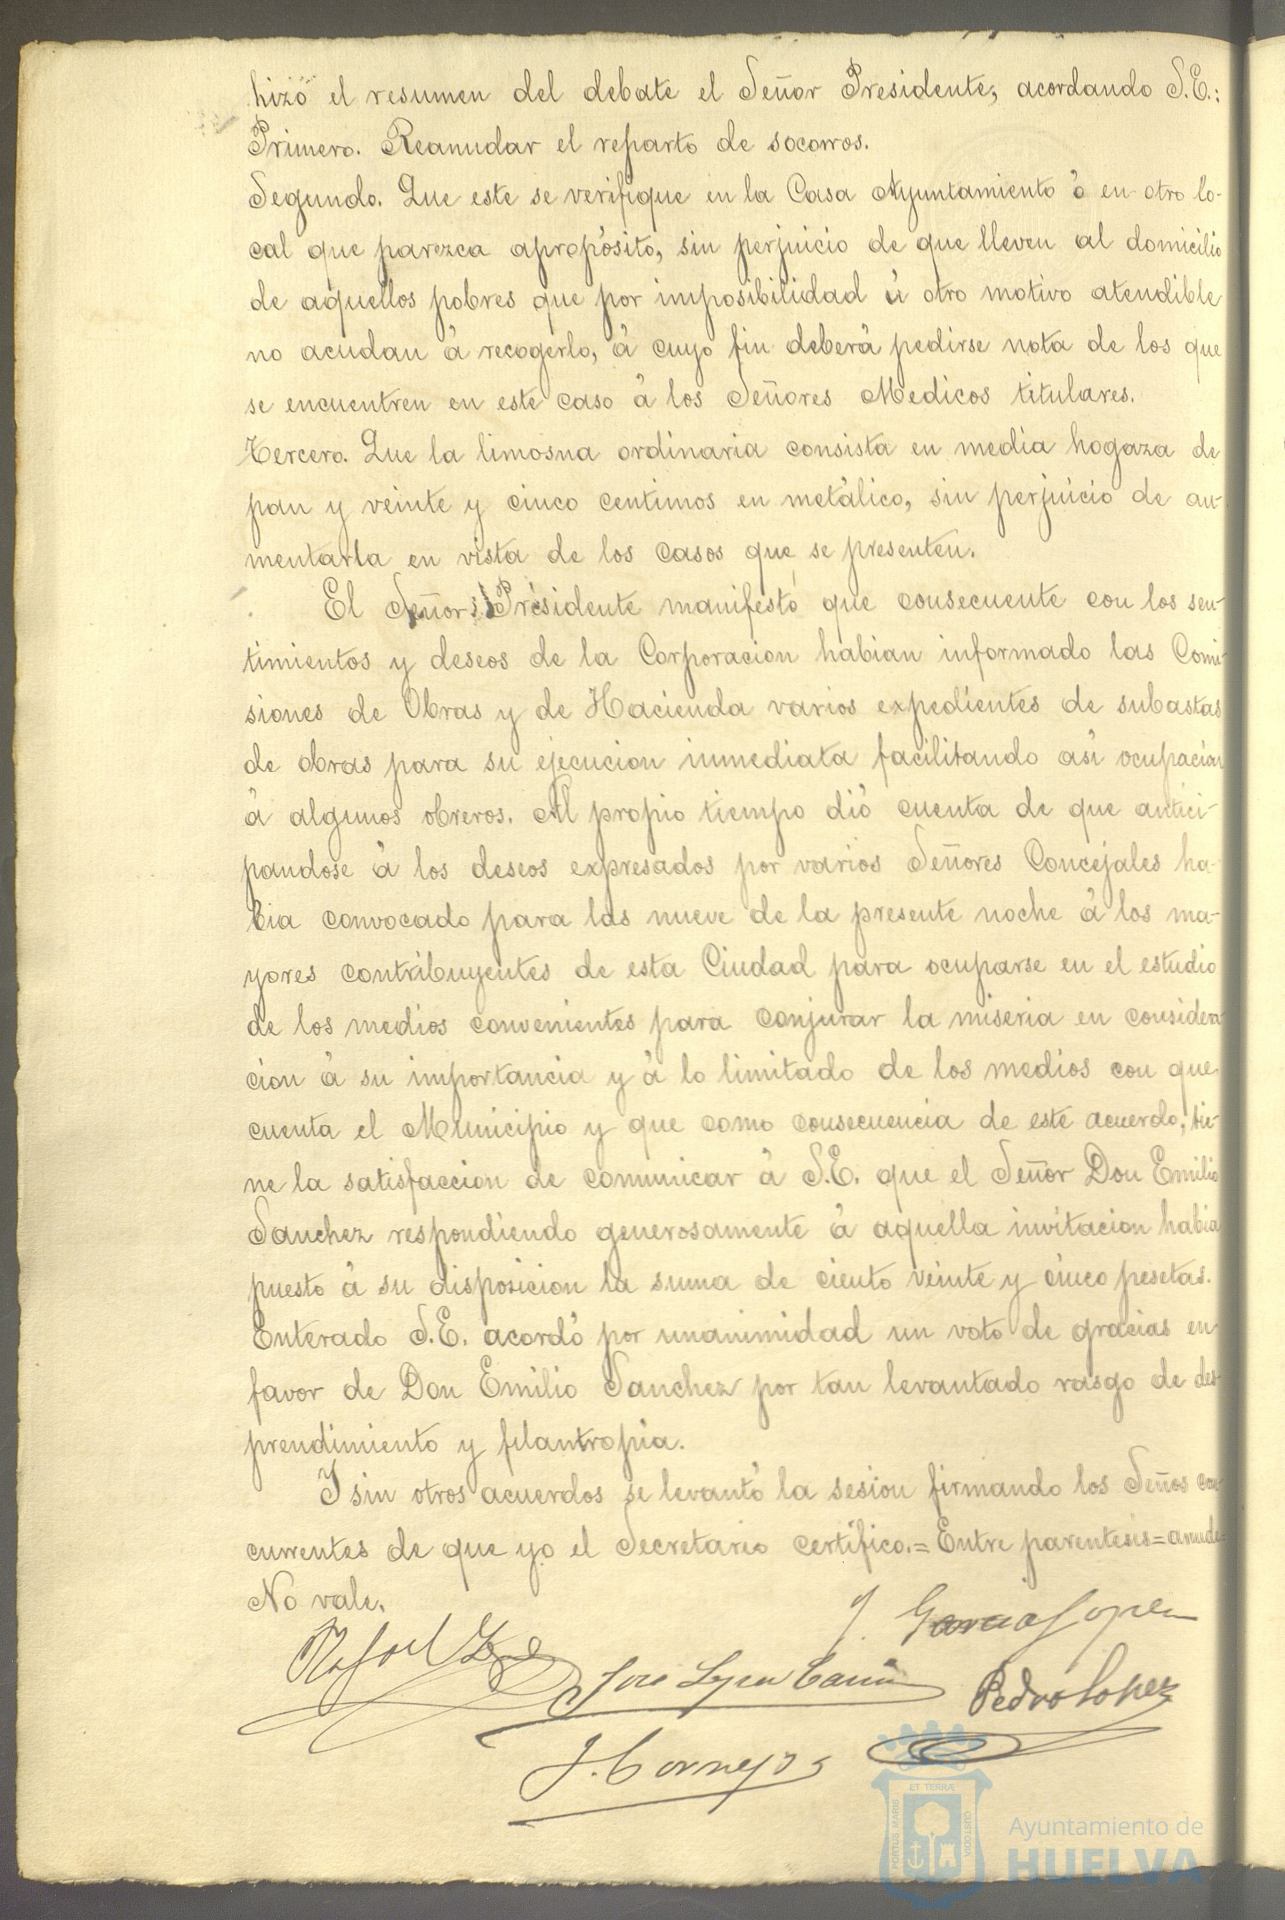 hizo el resumen del debate el Señor Presidente, acordando S.E.:
Primero. Reanudar el reparto de socorros.
Segundo. Que este se verifique en la Casa Ayuntamiento ó en otro lo-
cal que parezca apropósito, sin perjuicio de que lleven al domicilio
de aquellos pobres que por imposibilidad ú otro motivo atendible
no acudan á recogerlo, á cuyo fin deberá pedirse nota de los que
se encuentren en este caso á los Señores Medicos titulares.
Tercero. Que la limosna ordinaria consista en media hogaza de
pan y veinte y cinco centimos en metálico, sin perjuicio de au-
mentarla en vista de los casos que se presenten.
El Señor Presidente manifestó que consecuente con los sen-
timientos y deseos de la Corporacion habian informado las Comi-
siones de Obras y de Hacienda varios expedientes de subastas
de obras para su ejecucion inmediata facilitando así ocupacion
á algunos obreros. Al propio tiempo dió cuenta de que antici-
pandose á los deseos expresados por varios Señores Concejales ha-
bia convocado para las nueve de la presente noche á los ma-
yores contribuyentes de esta Ciudad para ocuparse en el estudio
de los medios convenientes para conjurar la miseria en considera-
cion á su importancia y á lo limitado de los medios con que
cuenta el Municipio y que como consecuencia de este acuerdo, tie-
ne la satisfaccion de comunicar á S.E. que el Señor Don Emilio
Sanchez respondiendo generosamente á aquella invitacion habia
puesto á su disposicion la suma de ciento veinte y cinco pesetas.
Enterado S.E. acordó por unanimidad un voto de gracias en
favor de Don Emilio Sanchez por tan levantado rasgo de des-
prendimiento y filantropia.
Y sin otros acuerdos se levantó la sesion firmando los Seños con-
currentes de que yo el Secretario certifico.=Entre parentesis=anude=
No vale.
J. Garcia Lopez
Rafael
José Lopez
Pedro Lopez
J. Cornejo
PORTUS MARIS ET TERRÆ CUSTODIA
Ayuntamiento de
HUELVA